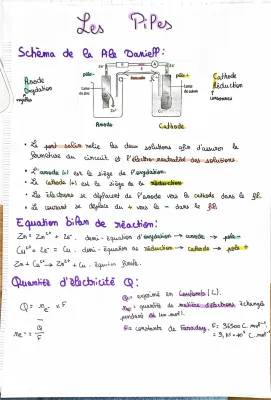 Les Piles
Schéma de la Pile Daniell:
Anode
Oxydation
Cathode
Réduction
pôle -
pôle +
Lame de zinc
Lame de cuivre
Anode Cathode
• Le pont salin relie les deux solutions afin d'assurer la
fermeture du circuit et l'électro-neutralité des solutions.
• L'anode (-) est le siège de l'oxydation.
• La cathode (+) est le siège de la réduction
• Les électrons se déplacent de l'anode vers la cathode dans le fil.
• Le courant se déplace du + vers le - dans le fil.
Equation bilan de réaction:
Zn = Zn²⁺ + 2e⁻. demi-équation d'oxydation → anode → pole -
Cu²⁺ + 2e⁻ = Cu. demi-équation de réduction → cathode → pole +
Zn + Cu²⁺ → Zn²⁺ + Cu. équation finale.
Quantité d'électricité Q:
Q = ne⁻ x F
ne⁻ = Q/F
Q = exprimé en Coulombs (C).
ne⁻ = quantité de matière d'électrons échangés
pendant en mol.
F = constante de Faraday. F = 96500 C.mol⁻¹